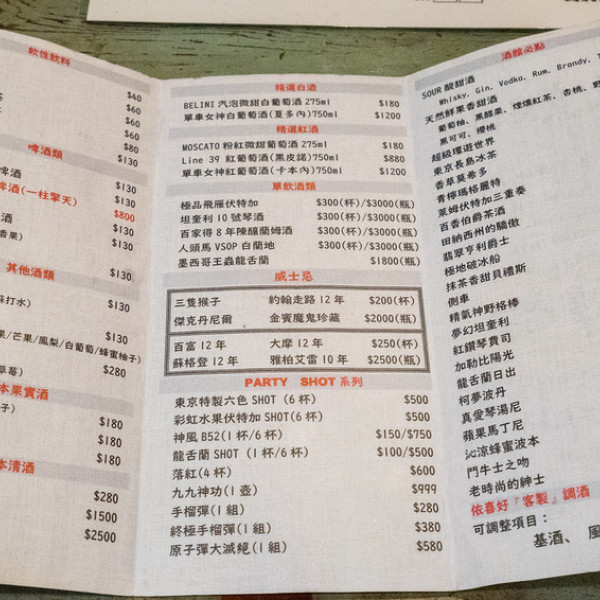 軟性飲料
$40
$60
$60
$80
$130
啤酒類
啤酒 $130
啤酒(一柱擎天) $800
$130
$130
其他酒類
$130
蘇打水)
$130
果/芒果/鳳梨/白葡萄/蜂蜜柚子)
$280
本果實酒
$180
$180
$180
本清酒
$280
$1500
$2500
精選白酒
BELINI 汽泡微甜白葡萄酒 275ml $180
單車女神白葡萄酒(夏多內)750ml $1200
精選紅酒
MOSCATO 粉紅微甜葡萄酒 275ml $180
Line 39 紅葡萄酒(黑皮諾)750ml $880
單車女神紅葡萄酒(卡本內)750ml $1200
單飲酒類
極品飛雁伏特加 $300(杯)/$3000(瓶)
坦奎利 10 號琴酒 $300(杯)/$3000(瓶)
百家得 8 年陳釀蘭姆酒 $300(杯)/$3000(瓶)
人頭馬 VSOP 白蘭地 $300(杯)/$3000(瓶)
墨西哥王蟲龍舌蘭 $1800(瓶)
威士忌
三隻猴子 約翰走路 12 年 $200(杯)
傑克丹尼爾 金賓魔鬼珍藏 $2000(瓶)
百富 12 年 大摩 12 年 $250(杯)
蘇格登 12 年 雅柏艾雷 10 年 $2500(瓶)
PARTY SHOT 系列
東京特製六色 SHOT (6 杯) $500
彩虹水果伏特加 SHOT(6 杯) $500
神風 B52(1 杯/6 杯) $150/$750
龍舌蘭 SHOT (1 杯/6 杯) $100/$500
落紅(4 杯) $600
九九神功(1 壺) $999
手榴彈(1 組) $280
終極手榴彈(1 組) $380
原子彈大滅絕(1 組) $580
酒館必點
SOUR 酸甜酒
Whisky, Gin, Vodka, Rum, Brandy,
天然鮮果香甜酒
葡萄柚、黑醋栗、煙燻紅茶、杏桃、
黑可可、櫻桃
超級環遊世界
東京長島冰茶
香草莫希多
青檸瑪格麗特
萊姆伏特加三重奏
百香伯爵茶酒
田納西州的驕傲
翡翠亨利爵士
極地破冰船
抹茶香甜貝禮斯
側車
精氣神野格棒
夢幻坦奎利
紅鑽琴費司
加勒比陽光
龍舌蘭日出
柯夢波丹
真愛琴湯尼
蘋果馬丁尼
沁涼蜂蜜波本
鬥牛士之吻
老時尚的紳士
依喜好『客製』調酒
可調整項目：
基酒、 風